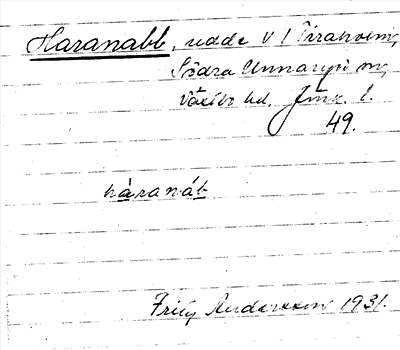 Haranabb, udde V I Tiraholm,
Södra Unnaryd sn,
Västbo hd. Jönk. l.
49.
háranáb
Fritz Andersson 1931.